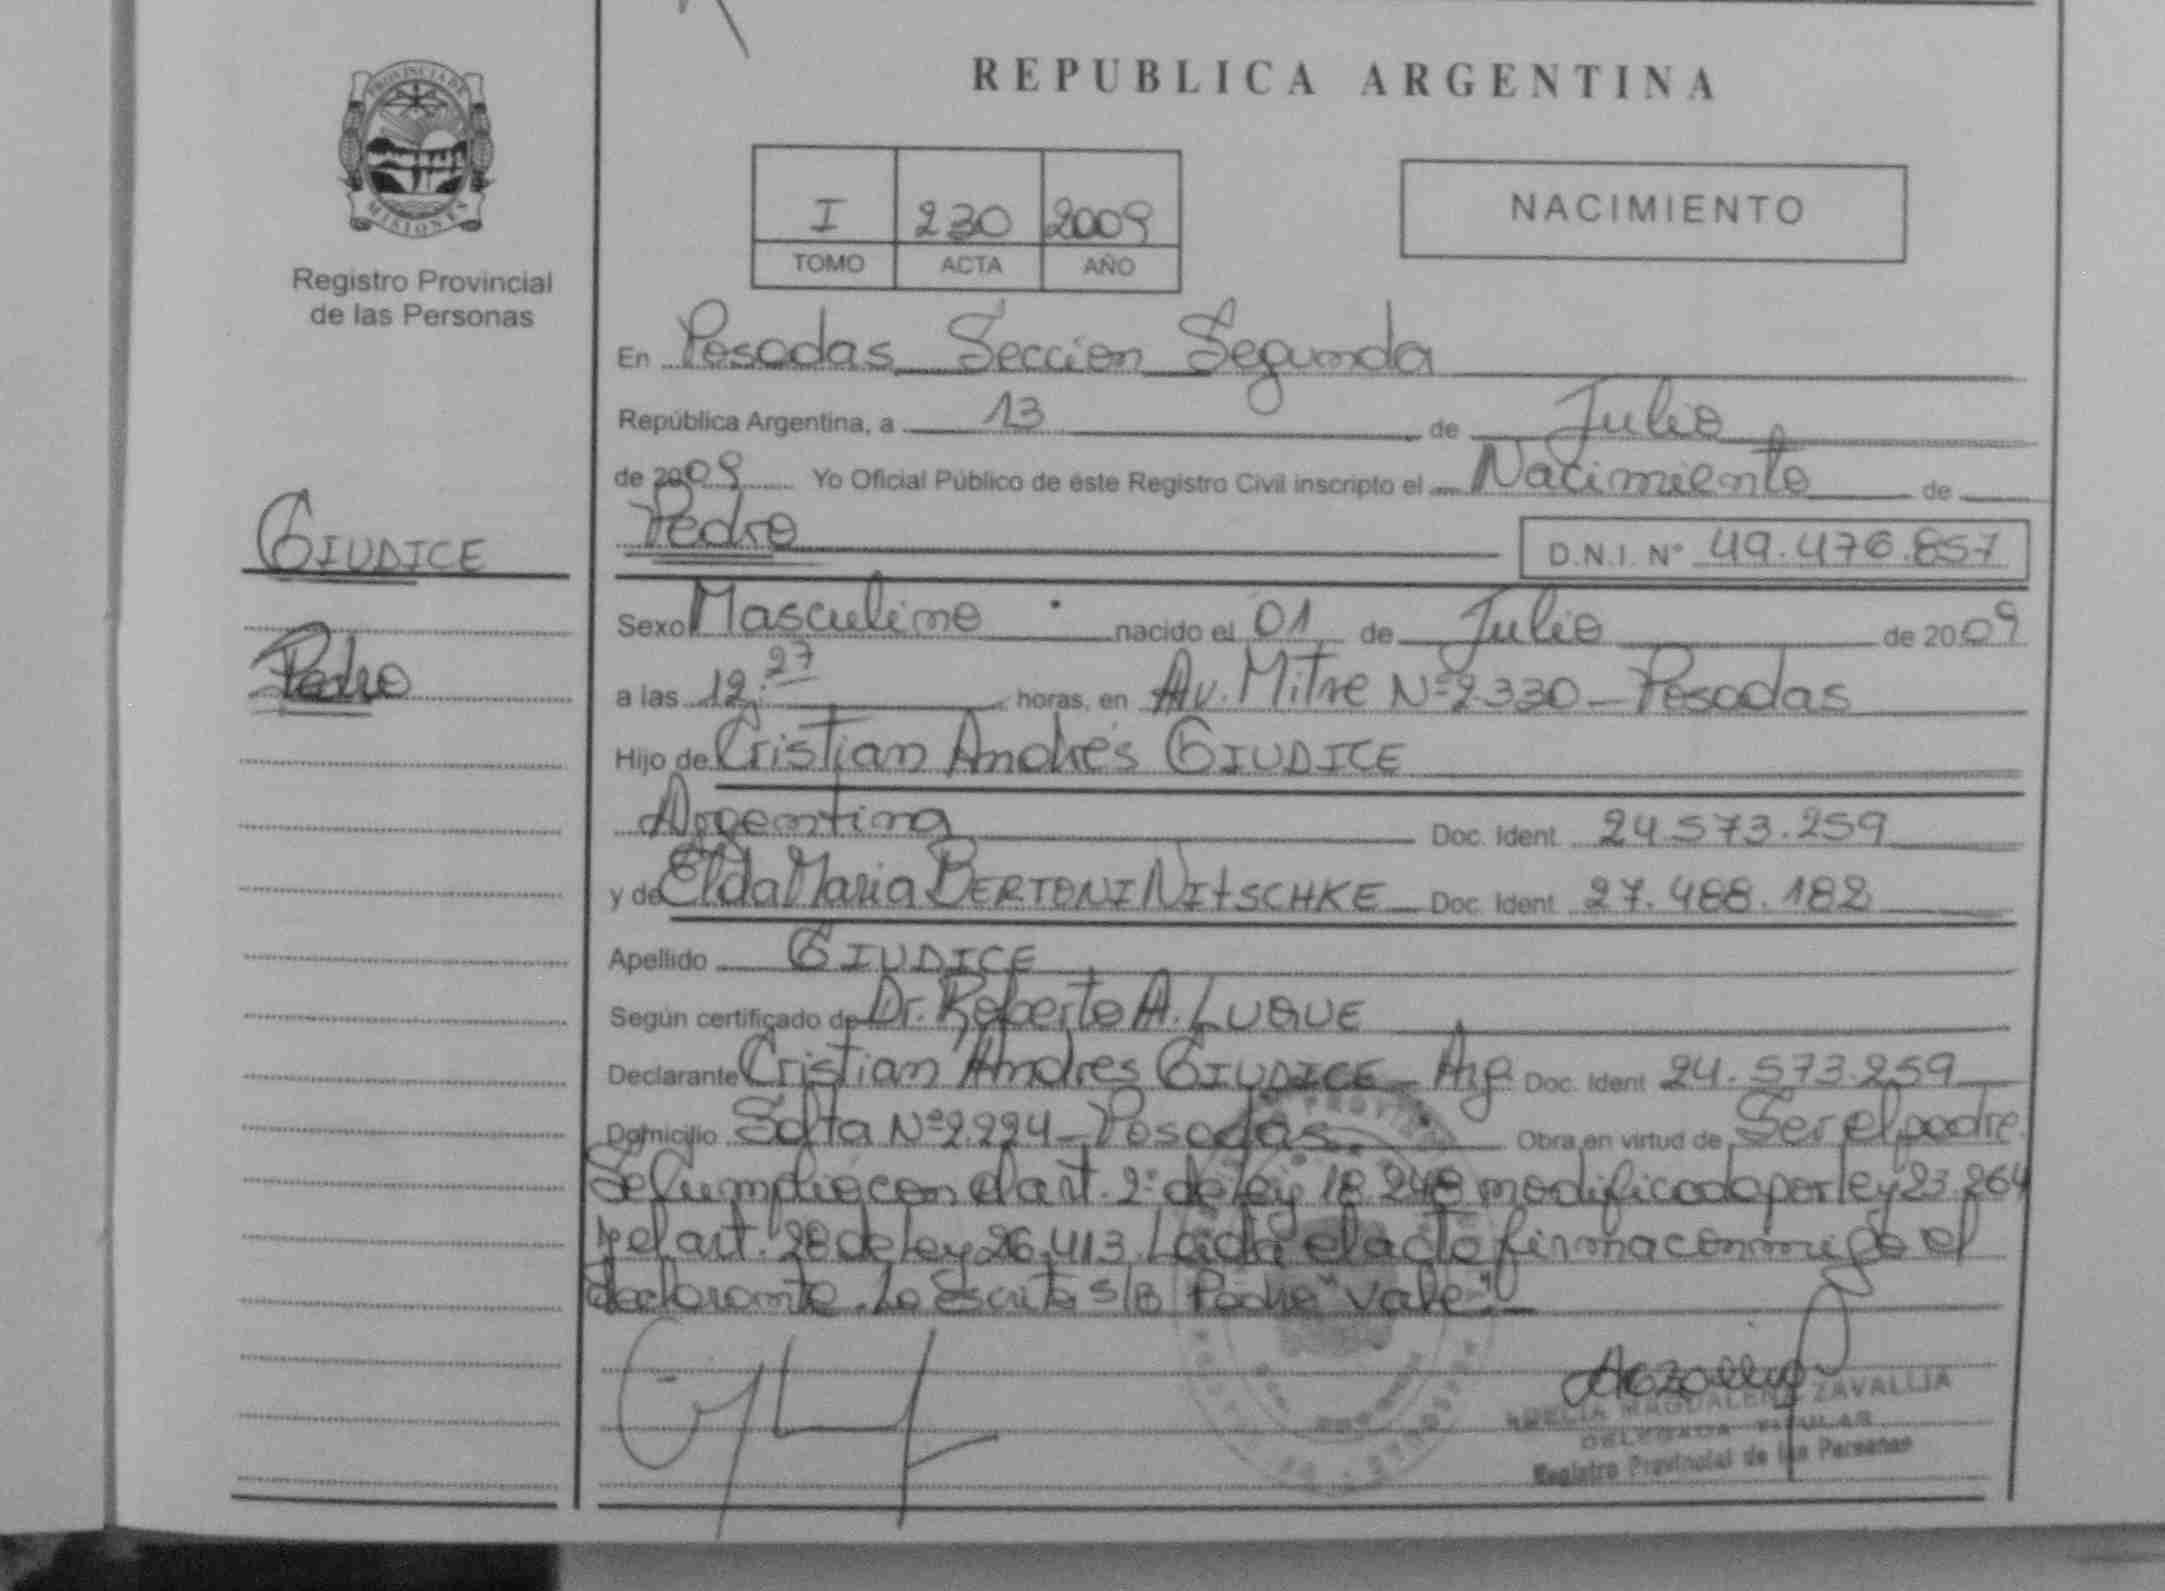 REPUBLICA ARGENTINA
PROVINCIA DE
MISIONES
Registro Provincial
de las Personas
I 230 2009
TOMO ACTA AÑO
NACIMIENTO
En Posadas Seccion Segunda
República Argentina, a 13 de Julio
de 2009 Yo Oficial Público de éste Registro Civil inscripto el Nacimiento de
GIUDICE
Pedro D.N.I. N° 49.476.857
Sexo Masculino nacido el 01 de Julio de 2009
Pedro
a las 12:27 horas, en Av. Mitre Nº 2330 - Posadas
Hijo de Cristian Andrés GIUDICE
Argentina Doc. Ident. 24.573.259
y de Elda Maria BERTONI NItSCHKE Doc. Ident. 27.488.182
Apellido GIUDICE
Según certificado de Dr. Roberto A. LUQUE
Declarante Cristian Andres GIUDICE - Arg. Doc. Ident 24.573.259
Domicilio Salta Nº 2.224 - Posadas. Obra en virtud de Ser el padre.
Se Cumplió con el art. 2º de ley 18.248 modificada por ley 23.264
y el art. 28 de ley 26.413. Leida el acta firma conmigo el
declarante. Lo Escrito s/B "Pedro" Vale".
MAGDALENA ZAVALLIA
DELEGADA TITULAR
Registro Provincial de las Personas